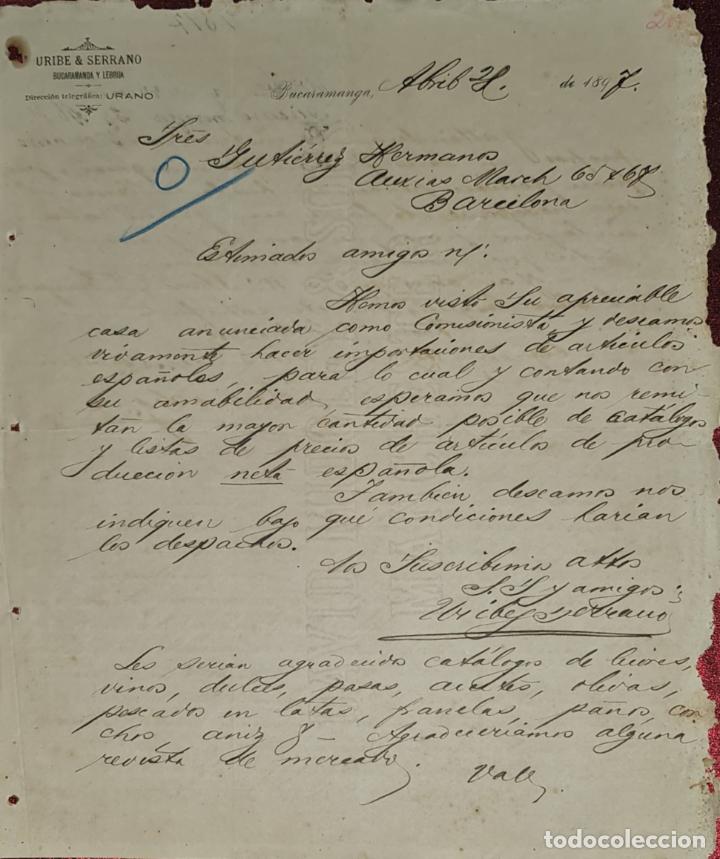 URIBE & SERRANO
BUCARAMANGA Y LEBRIJA
Dirección telegráfica: URANO
Bucaramanga, Abril 21 de 1897.
Sres
Gutiérrez Hermanos
Auxias March 65 & 67
Barcelona
Estimados amigos n/.
Hemos visto Su apreciable
casa anunciada como Comisionista, y deseamos
vivamente hacer importaciones de articulos
españoles, para lo cual y contando con
su amabilidad, esperamos que nos remi-
tan la mayor cantidad posible de catálogos
y listas de precios de articulos de pro-
duccion neta española.
También deseamos nos
indiquen bajo qué condiciones harian
los despachos.
Nos Suscribimos attos
S. S. y amigos:
Uribe y Serrano
Les serian agradecido catálogos de licores,
vinos, dulces, pasas, aceites, olivas,
pescados en latas, franelas, paños, cor
chos, aniz y — Agradeceríamos alguna
revista de mercado.
Vale
todocoleccion